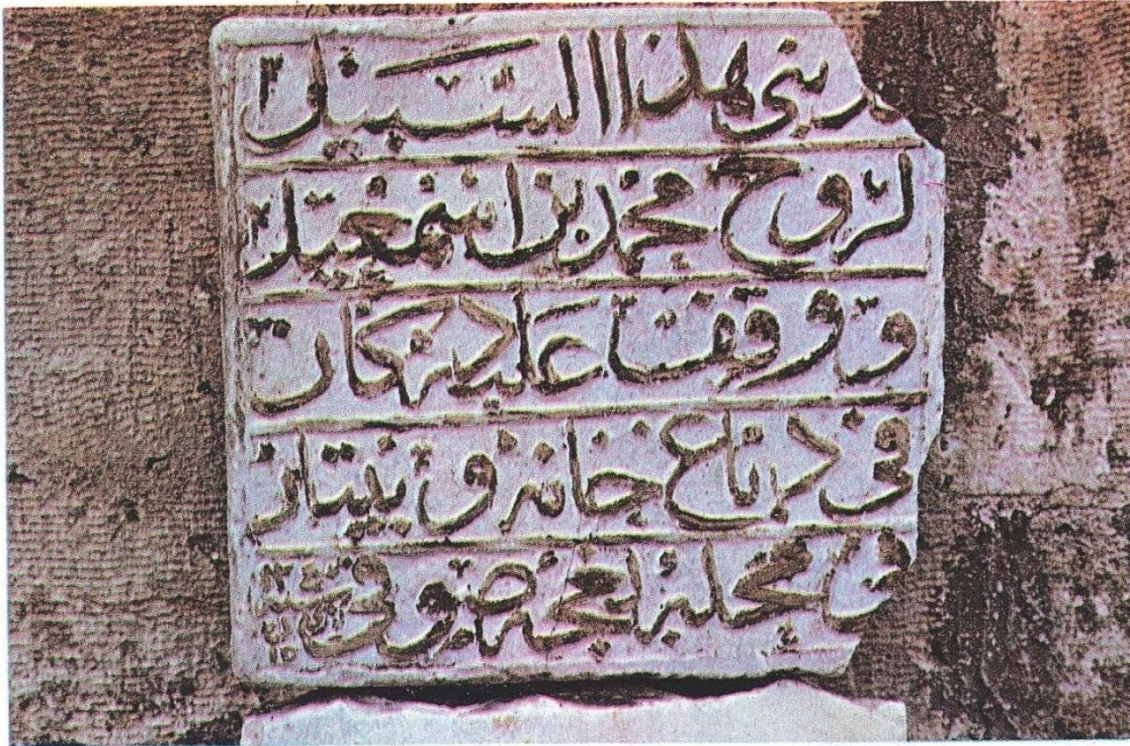 بني هذا السبيل
لروح محمد بن اسمعيل
ووقفا عليه دكان
في دباغ خانه وبيتان
في محلة